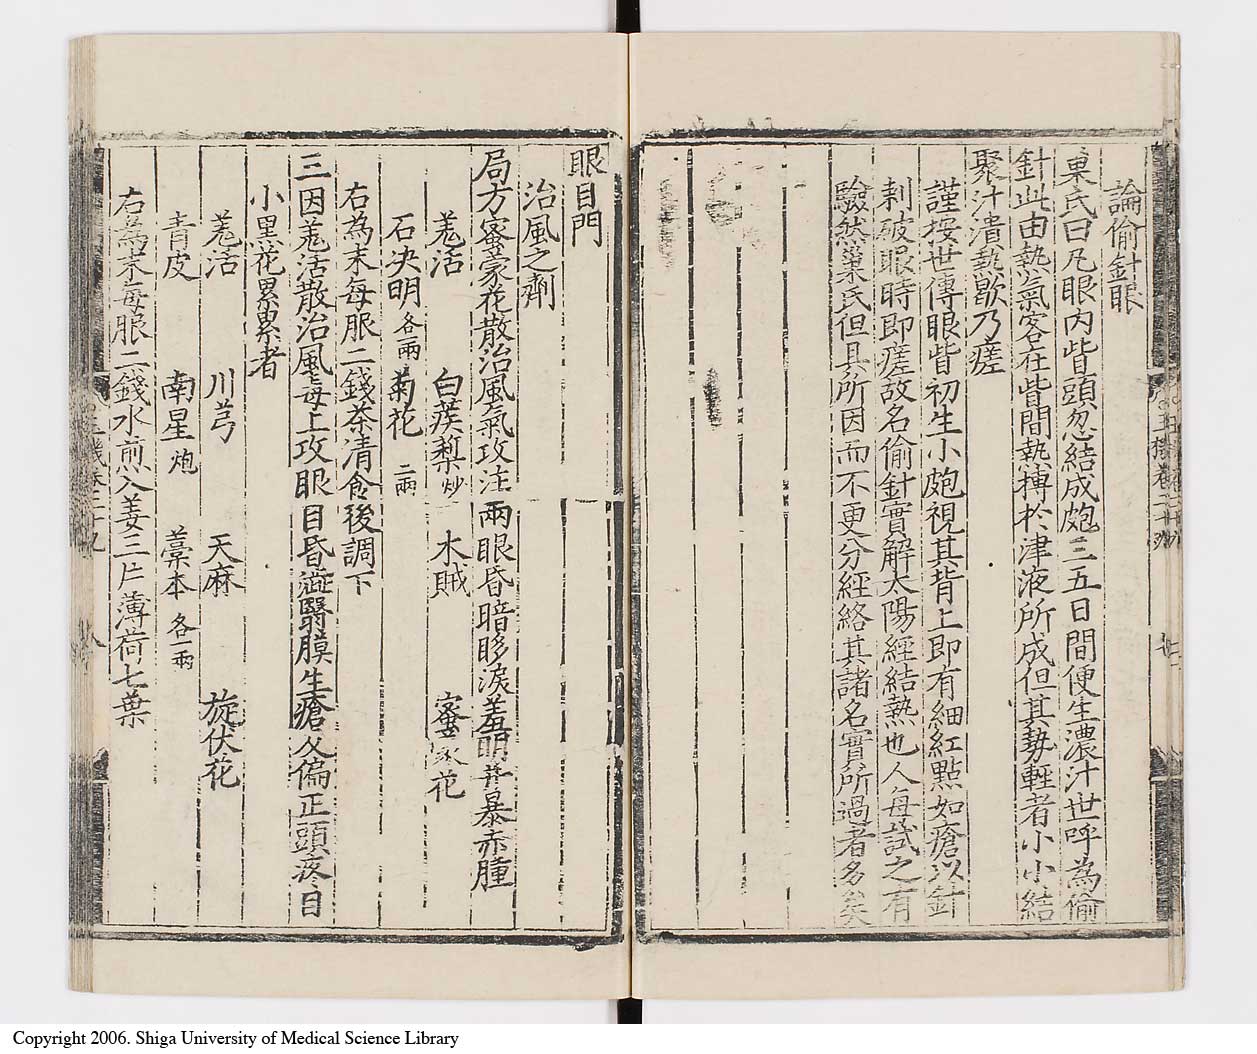 論偷針眼
巢氏曰凡眼内眥頭忽結成皰三五日間便生濃汁世呼為偷
針此由熱氣客在眥間熱搏於津液所成但其勢輕者小小結
聚汁潰熱歇乃瘥
謹按世傳眼眥初生小皰視其背上即有細紅點如瘡以針
刺破眼時即瘥故名偷針實解太陽經結熱也人每試之有
驗然巢氏但具所因而不更分經絡其諸名實所過者多矣
眼目門
治風之劑
局方密蒙花散治風氣攻注兩眼昏暗眵淚羞明并暴赤腫
羌活 白蒺梨炒 木賊 密蒙花
石决明各一兩 菊花二兩
右為末每服二錢茶清食後調下
三因羗活散治風毒上攻眼目昏澁翳膜生瘡及偏正頭疼目
小黑花累累者
羗活 川芎 天麻 旋伏花
青皮 南星炮 藁本各一兩
右為末每服二錢水煎入姜三片薄荷七葉
Copyright 2006. Shiga University of Medical Science Library